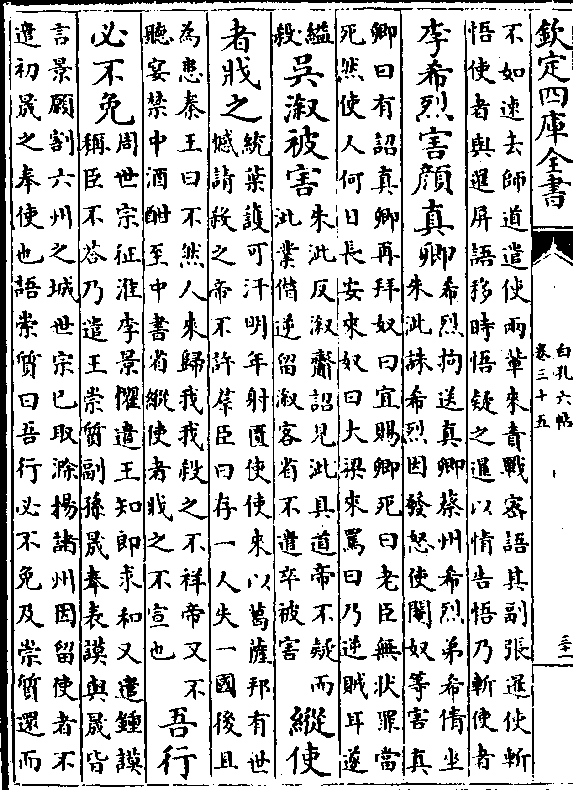 欽定四庫全書
白孔六帖
卷三十五
三十一
不如速去師道遣使兩輩來責戰密語其副張暹使斬
悟使者與暹屏語移時悟疑之暹以情告悟乃斬使者
李希烈害顏真卿
希烈拘送真卿蔡州希烈弟希倩坐
朱泚誅希烈因發怒使閹奴等害真
卿曰有詔真卿再拜奴曰宜賜卿死曰老臣無狀罪當
死然使人何日長安來奴曰大梁來罵曰乃逆賊耳遂
縊
殺
吳淑被害
朱泚反淑齎詔見泚具道帝不疑而
泚業僭逆留淑客省不遣卒被害
縱使
者戕之
統葉護可汗明年射匱使使來以葛薩邦有世
憾請殺之帝不許羣臣曰存一人失一國後且
為患秦王曰不然人來歸我我殺之不祥帝又不
聽宴禁中酒酣至中書省縱使者戕之不宣也
吾行
必不免
周世宗征淮李景懼遣王知即求和又遣鍾謨
稱臣不答乃遣王崇質副孫晟奉表謨與晟皆
言景願割六州之城世宗已取滁揚諸州因留使者不
遣初晟之奉使也語崇質曰吾行必不免及崇質還而